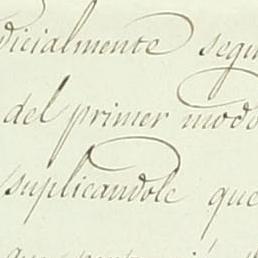 dicialmente segu
del primer modo
suplicandole que